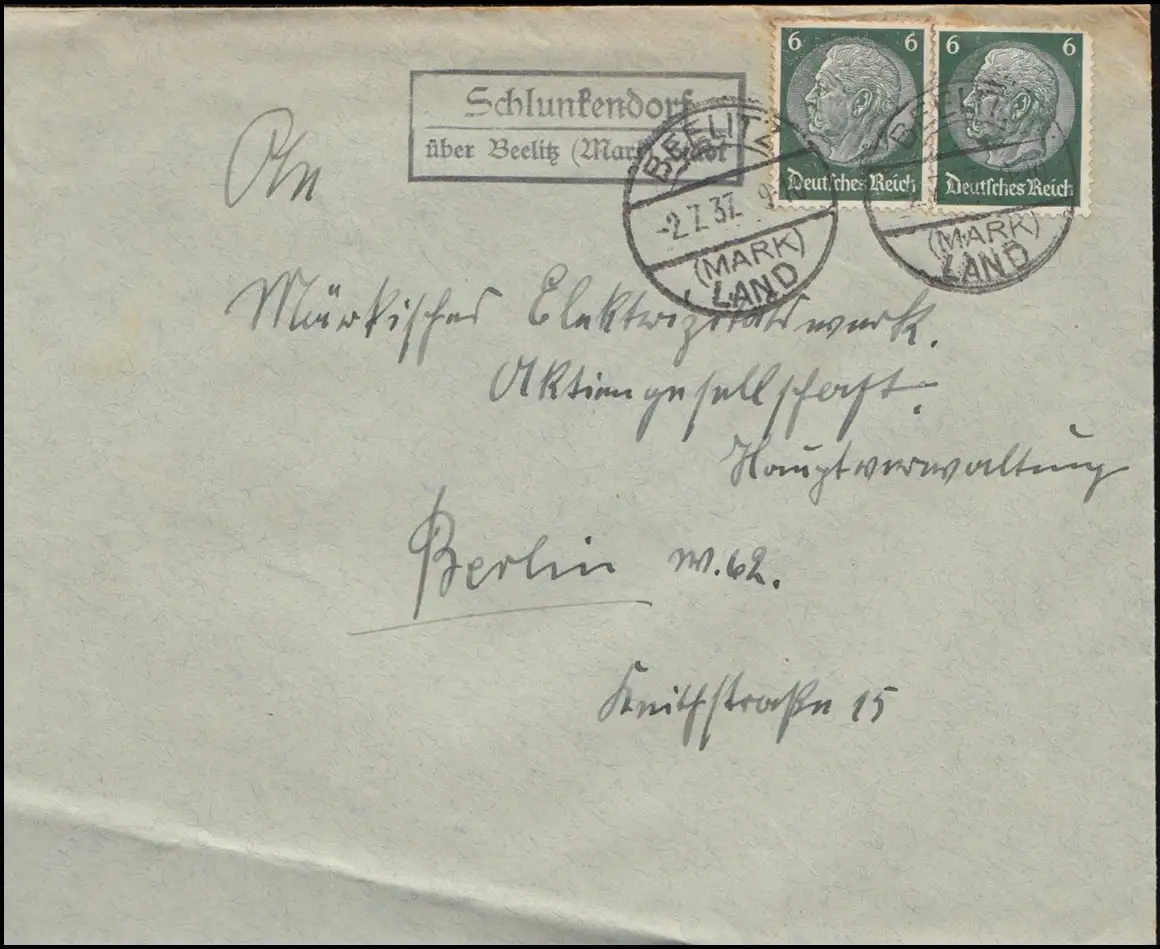 6 6
6 6
Deutsches Reich
Deutsches Reich
Schlunkendorf
über Beelitz (Mark) Land
BEELITZ
-2.7.37. 9-10
(MARK)
LAND
BEELITZ
(MARK)
LAND
An
Märkisches Elektrizitätswerk.
Aktiengesellschaft.
Hauptverwaltung
Berlin W. 62.
15